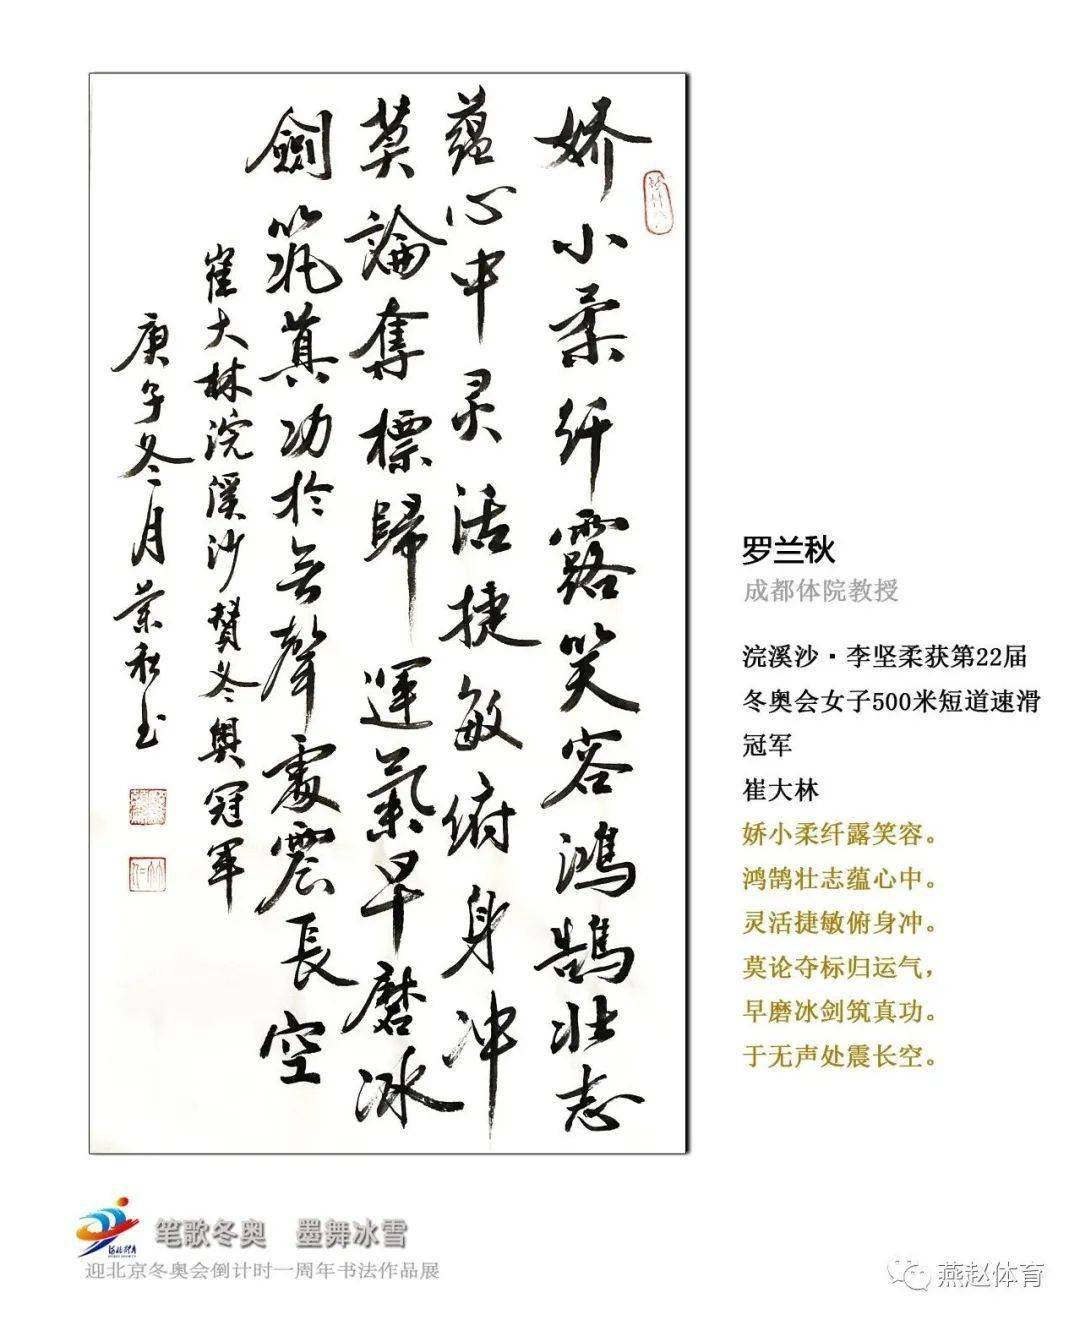 娇小柔纤露笑容鴻鵠壮志
蘊心中灵活捷敏俯身冲
莫論奪標歸運氣早磨冰
劍筑真功於无聲處震長空
崔大林浣溪沙贊冬奥冠軍
庚子冬月蘭秋书
罗兰秋
成都体院教授
浣溪沙·李坚柔获第22届
冬奥会女子500米短道速滑
冠军
崔大林
娇小柔纤露笑容。
鸿鹄壮志蕴心中。
灵活捷敏俯身冲。
莫论夺标归运气，
早磨冰剑筑真功。
于无声处震长空。
笔歌冬奥 墨舞冰雪
迎北京冬奥会倒计时一周年书法作品展
燕赵体育